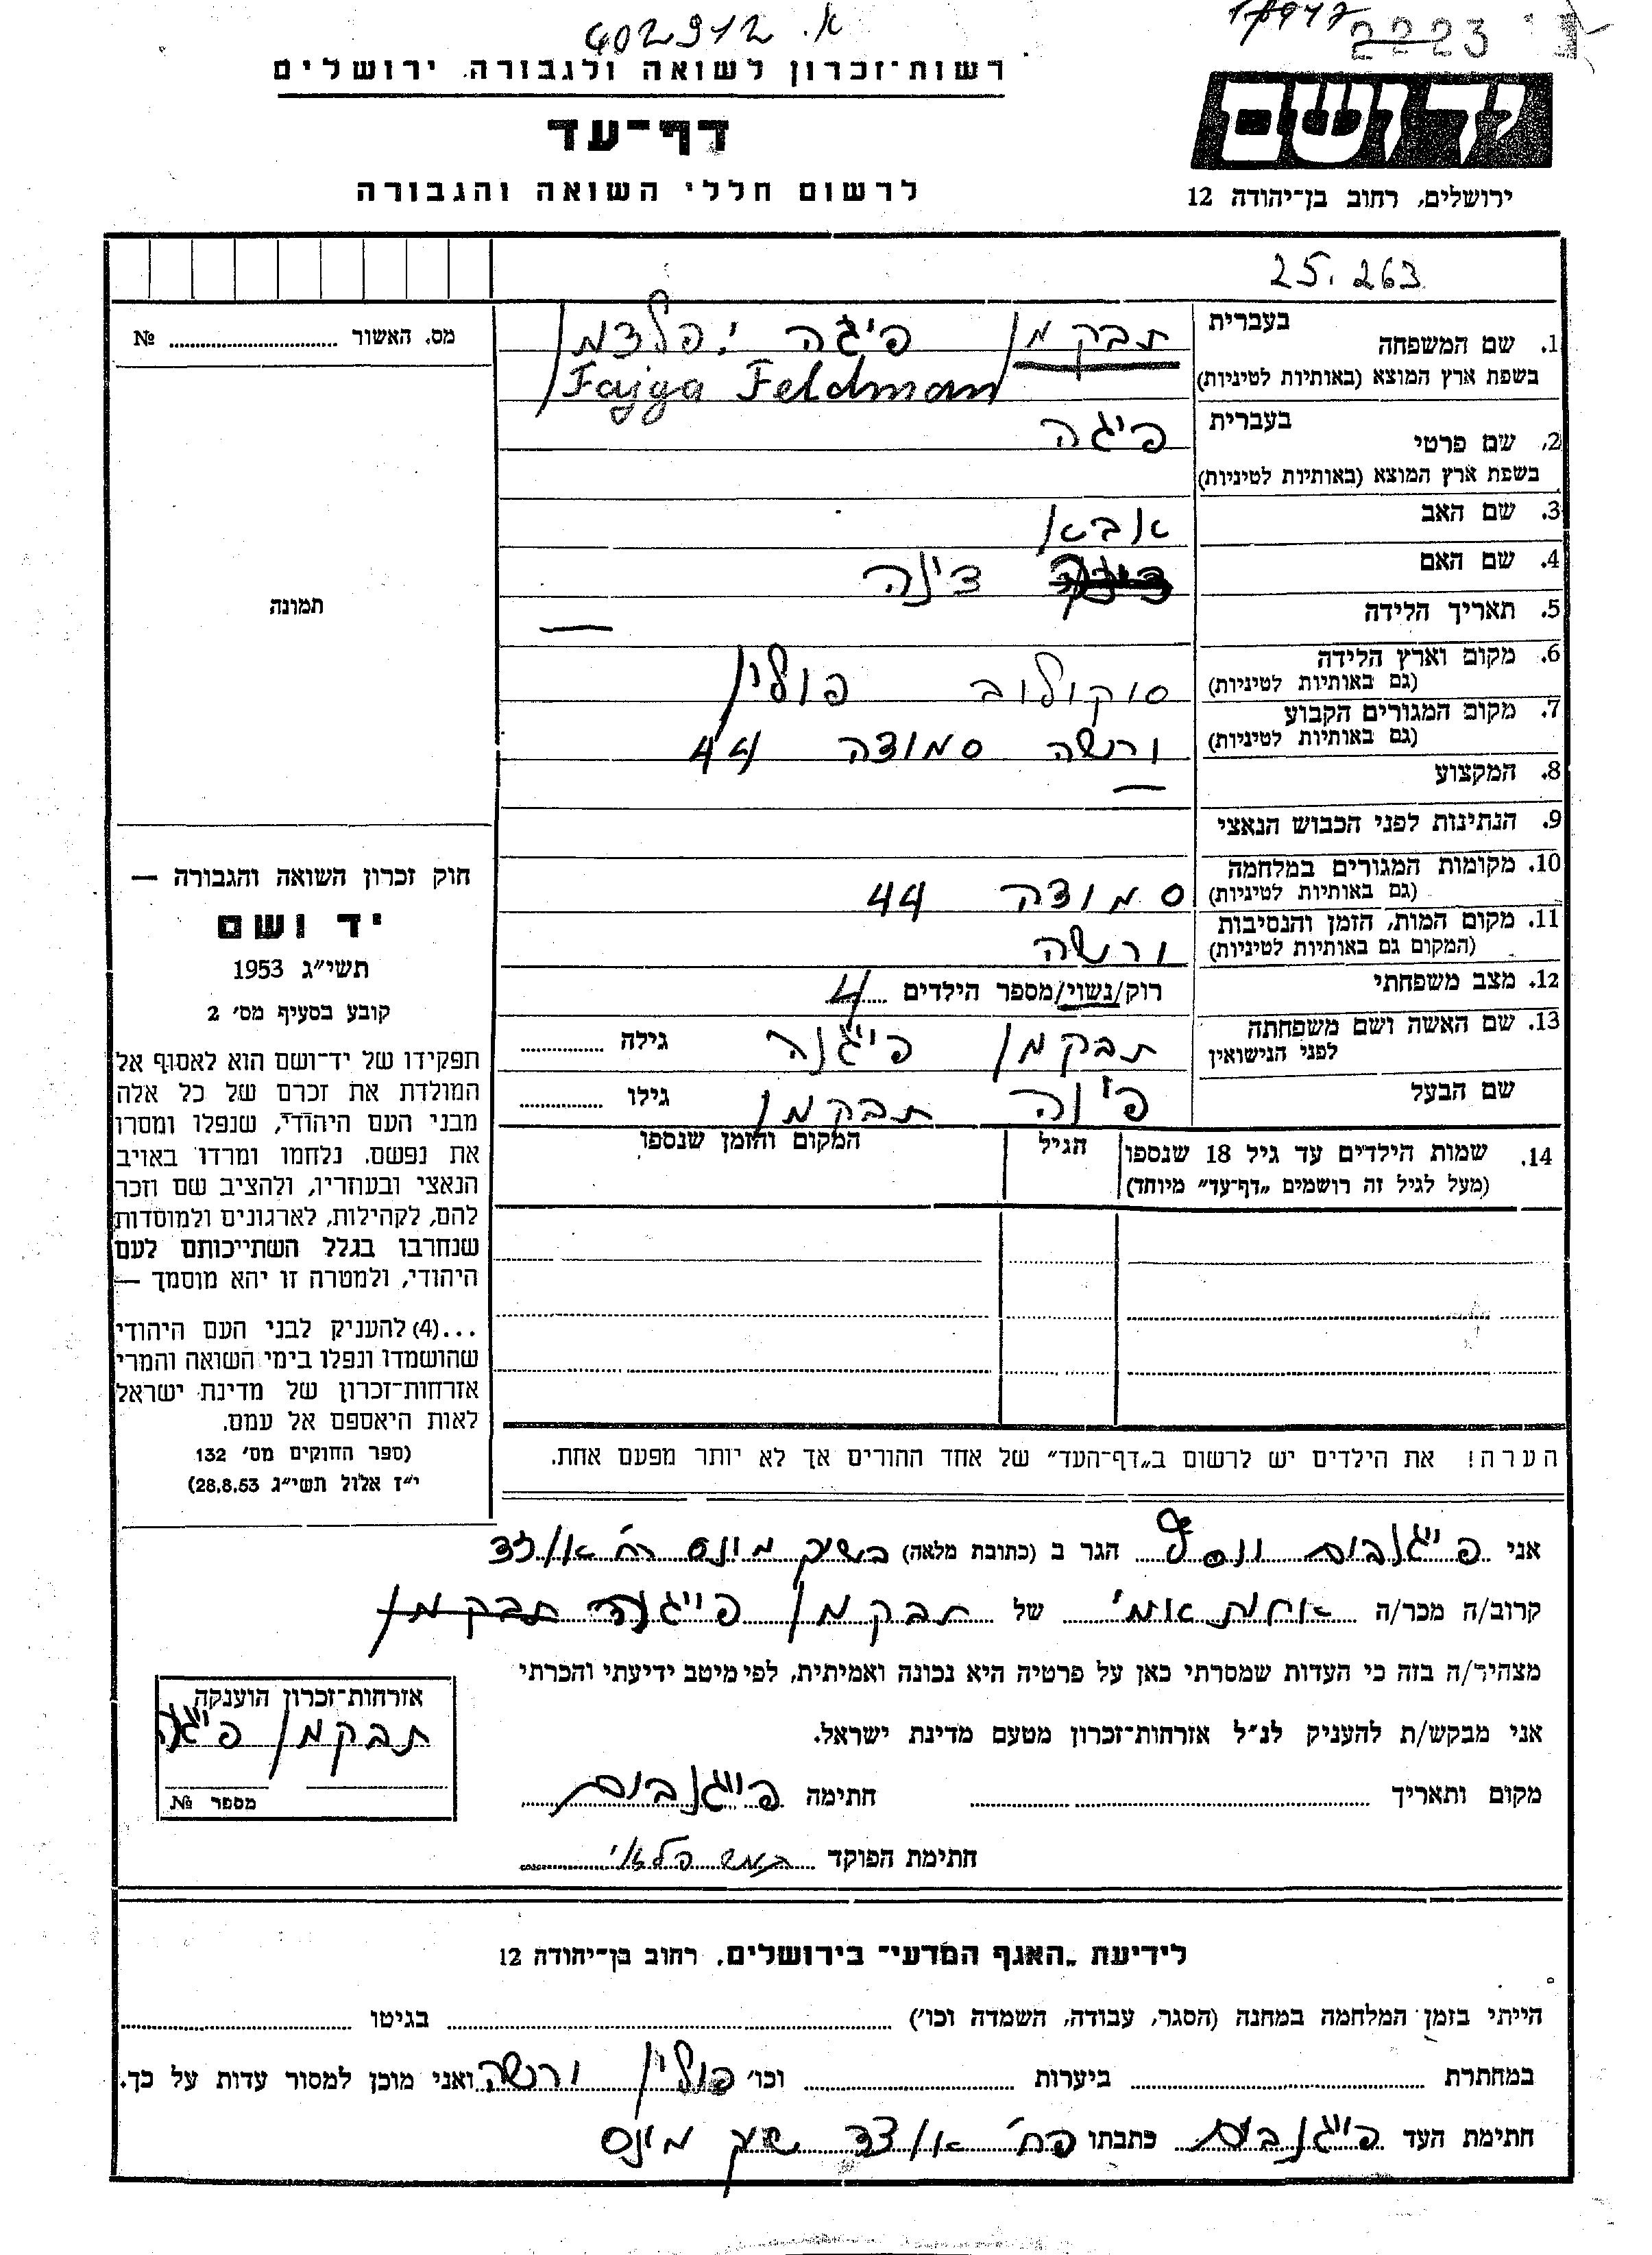 א. 402912
17947 2223
רשות־זכרון לשואה ולגבורה. ירושלים
יד ושם
דף־עד
לרשום חללי השואה והגבורה
ירושלים, רחוב בן־יהודה 12
25.263
מס. האשור № 
1. שם המשפחה בעברית תבקמן פיגה פלדמן
בשפת ארץ המוצא (באותיות לטיניות) Fajga Feldman
2. שם פרטי בעברית פיגה
בשפת ארץ המוצא (באותיות לטיניות)
3. שם האב אבא
4. שם האם דינה
תמונה
5. תאריך הלידה —
6. מקום וארץ הלידה (גם באותיות לטיניות) סוקולוב פולין
7. מקום המגורים הקבוע (גם באותיות לטיניות) ורשה סמוצה 44
8. המקצוע —
9. הנתינות לפני הכבוש הנאצי
10. מקומות המגורים במלחמה (גם באותיות לטיניות) סמוצה 44
11. מקום המות, הזמן והנסיבות (המקום גם באותיות לטיניות) ורשה
12. מצב משפחתי רוק/נשוי/מספר הילדים 4
13. שם האשה ושם משפחתה לפני הנישואין תבקמן פייגה גילה
שם הבעל תבקמן גילו
14. שמות הילדים עד גיל 18 שנספו הגיל המקום והזמן שנספו
(מעל לגיל זה רושמים „דף־עד" מיוחד)
חוק זכרון השואה והגבורה —
יד ושם
תשי"ג 1953
קובע בסעיף מס' 2
תפקידו של יד־ושם הוא לאסוף אל
המולדת את זכרם של כל אלה
מבני העם היהודי, שנפלו ומסרו
את נפשם, נלחמו ומרדו באויב
הנאצי ובעוזריו, ולהציב שם וזכר
להם, לקהילות, לארגונים ולמוסדות
שנחרבו בגלל השתייכותם לעם
היהודי, ולמטרה זו יהא מוסמך —
...(4) להעניק לבני העם היהודי
שהושמדו ונפלו בימי השואה והמרי
אזרחות־זכרון של מדינת ישראל
לאות היאספם אל עמם.
(ספר החוקים מס' 132
י"ז אלול תשי"ג 28.8.53)
הערה! את הילדים יש לרשום ב„דף־העד" של אחד ההורים אך לא יותר מפעם אחת.
אני פייגנבוים יוסף הגר ב (כתובת מלאה) בשיק מונס
קרוב/ה מכר/ה אחות אמי של תבקמן פייגה תבקמן
מצהיר/ה בזה כי העדות שמסרתי כאן על פרטיה היא נכונה ואמיתית, לפי מיטב ידיעתי והכרתי
אני מבקש/ת להעניק לנ"ל אזרחות־זכרון מטעם מדינת ישראל.
אזרחות־זכרון הוענקה
תבקמן פייגה
מספר №
מקום ותאריך חתימה פייגנבוים
חתימת הפוקד
לידיעת „האגף המדעי" בירושלים, רחוב בן־יהודה 12
הייתי בזמן המלחמה במחנה (הסגר, עבודה, השמדה וכו') בגיטו
במחתרת ביערות וכו' פולין ורשה ואני מוכן למסור עדות על כך.
חתימת העד פייגנבוים כתבתו שיק מונס